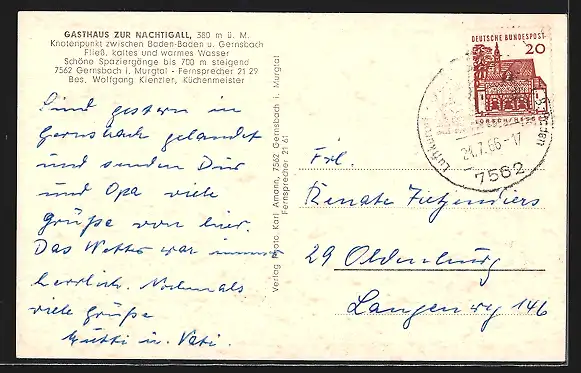 GASTHAUS ZUR NACHTIGALL, 380 m ü. M.
Knotenpunkt zwischen Baden-Baden u. Gernsbach
Fließ. kaltes und warmes Wasser
Schöne Spaziergänge bis 700 m steigend
7562 Gernsbach i. Murgtal - Fernsprecher 21 29
Bes. Wolfgang Kienzler, Küchenmeister
Sind gestern in
Gernsbach gelandet
und senden Dir
und Opa viele
Grüße von hier.
Das Wetter war immer
herrlich. Nochmals
viele Grüße
Mutti u. Vati.
Verlag Photo Karl Amann, 7562 Gernsbach i. Murgtal
Fernsprecher 21 61
DEUTSCHE BUNDESPOST
20
Luftkurort
21.7.66-17
7562
Frl.
Renate
29 Oldenburg
Langenweg 146